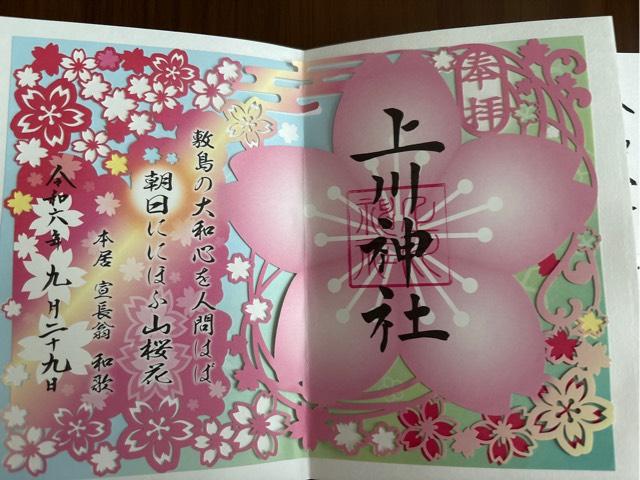 奉拝
上川神社
敷島の大和心を人問はば
朝日ににほふ山桜花
本居 宣長翁 和歌
令和六年 九月二十九日